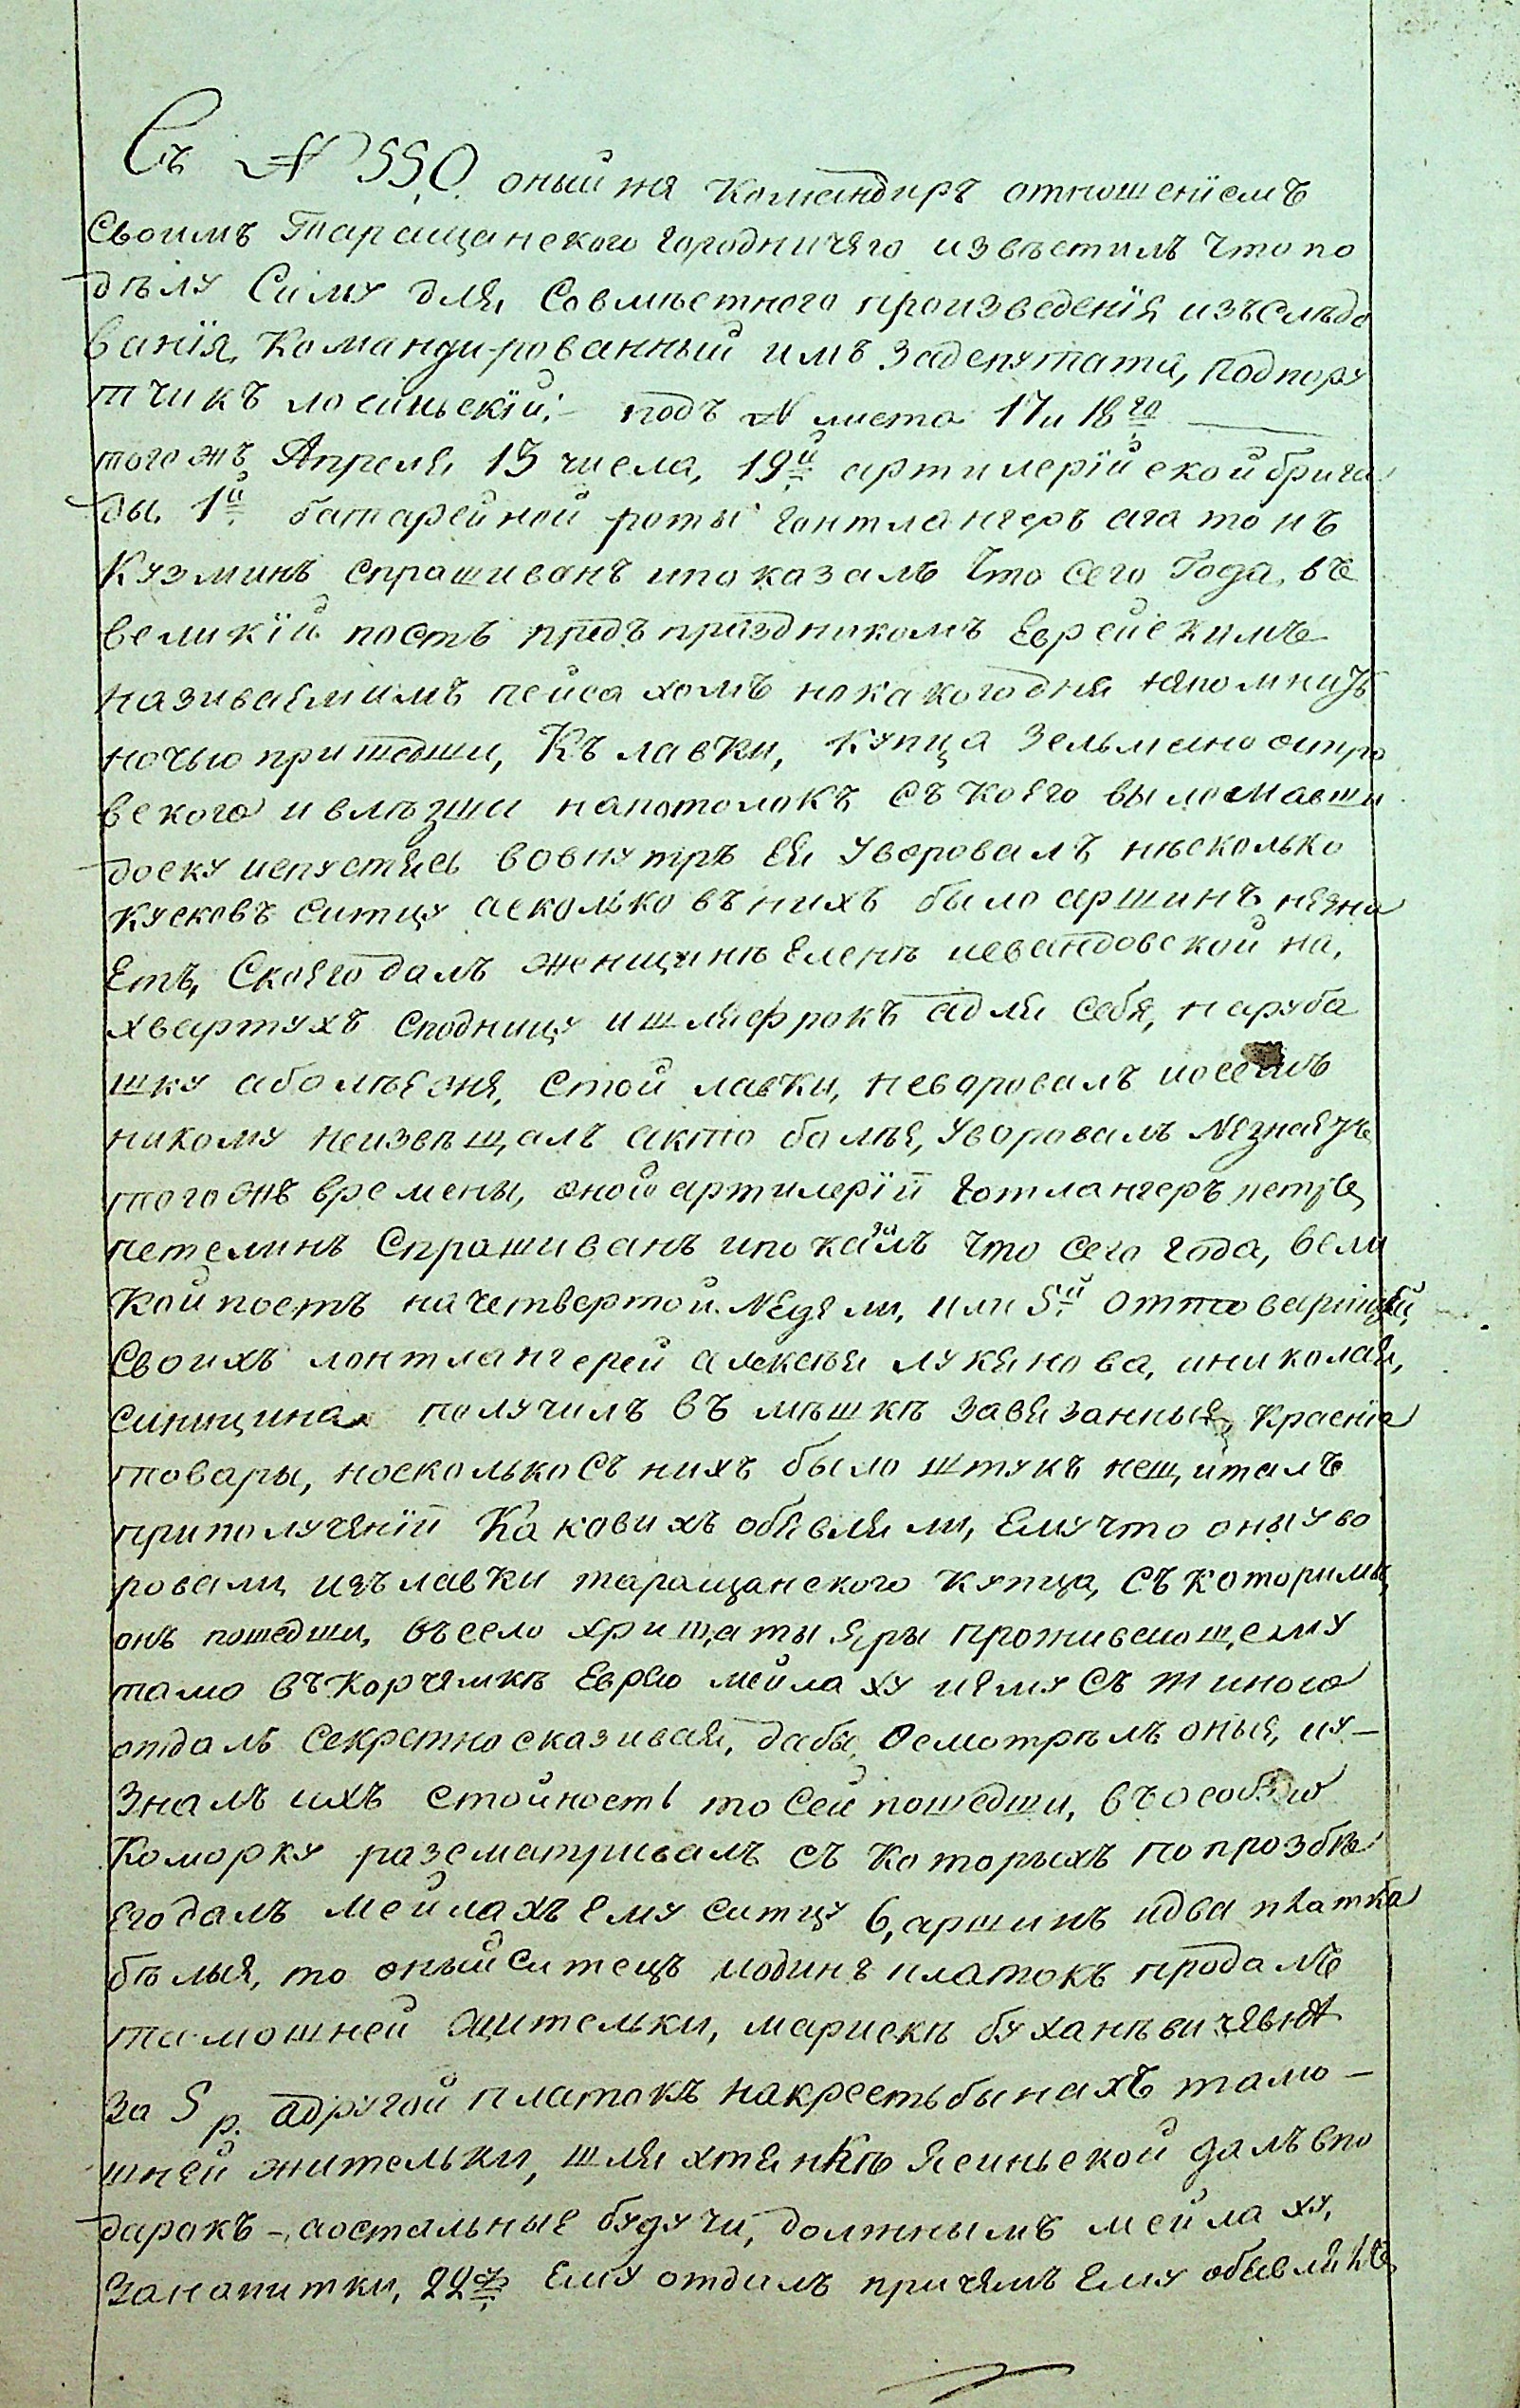 Съ № 550. оный жя командиръ отношениемъ
своимъ Таращанского городничяго извѣстилъ что по
дѣлу симу для, совмѣстного произведенїя изъслѣдо
ванїя, командированный имъ задепутата, подпору
тчикъ лосиньскїй:- подъ № листа 17 и 18го
тогожъ Апреля, 15 числа, 19й артилерїйской брига
ды, 1й батарейной роты гантлангеръ агатонъ
Кузминъ спрашиванъ ипоказалъ что сего года, въ
великїй постъ предъ праздникомъ Еврейскимъ
називаемимъ пейсахомъ нокакогодня няпомнитъ
ночью пришедши, Къ лавки, купца Зельманаостро
вского ивлѣзши напотолокъ съ коего выломавши
доску испустясь вовнутръ Ея уворовалъ нѣсколько
кусковъ ситцу асколько въ нихъ было аршинъ незна
Етъ, Скоягодалъ женщинѣ Еленѣ левандовской на,
хвартухъ сподницу ишляфрокъ адля себя, наруба
шку аболѣеоня, стой лавки, неворовалъ иосемъ
никому неизвѣщалъ акто болѣя, уворовалъ незнаятъ
тогожъ времены, оной артилерїи готлангеръ петръ
петелинъ спрашиванъ ипоказалъ что сего года, вели
кой постъ начетвертой недели, или 5й оттоварищей
своихъ лонтлангерей алексѣя лукянова, иниколая,
синицина получилъ въ мѣшкѣ завязанныя, краснїя
товары, носколькосъ нихъ было штукъ нещиталъ
приполучянїи каковихъ обявляли, Ему что оны уво
ровали, изълавки таращанского купца, съ которими,
онъ пошедши, въсело хрищаты яры проживающему
тамо въкорчямкѣ Еврею мейлаху иямусъ жиною
отдалъ секретносказивая, дабы, осмотрѣлъ оныя, иу-
зналъ ихъ стойность тосей пошедши, въособую
коморку разсматривалъ съ которыхъ попрозбѣ
Егодалъ мейлахъ Ему ситцу 6, аршинъ идва платка
бѣлыя, то оныйситецъ иодинъ платокъ продалъ
тамошней жительки, марискѣ буханѣвичявнѣ
за 5 р. адругой платокъ накрестьбынахъ тамо-
шней жительки, шляхтянкѣ Ясиньской далъ впо
дарокъ-, аостальные будучи, должнымъ мейлаху,
Занапитки, 22 Ему отдалъ причямъ Ему обявляя,